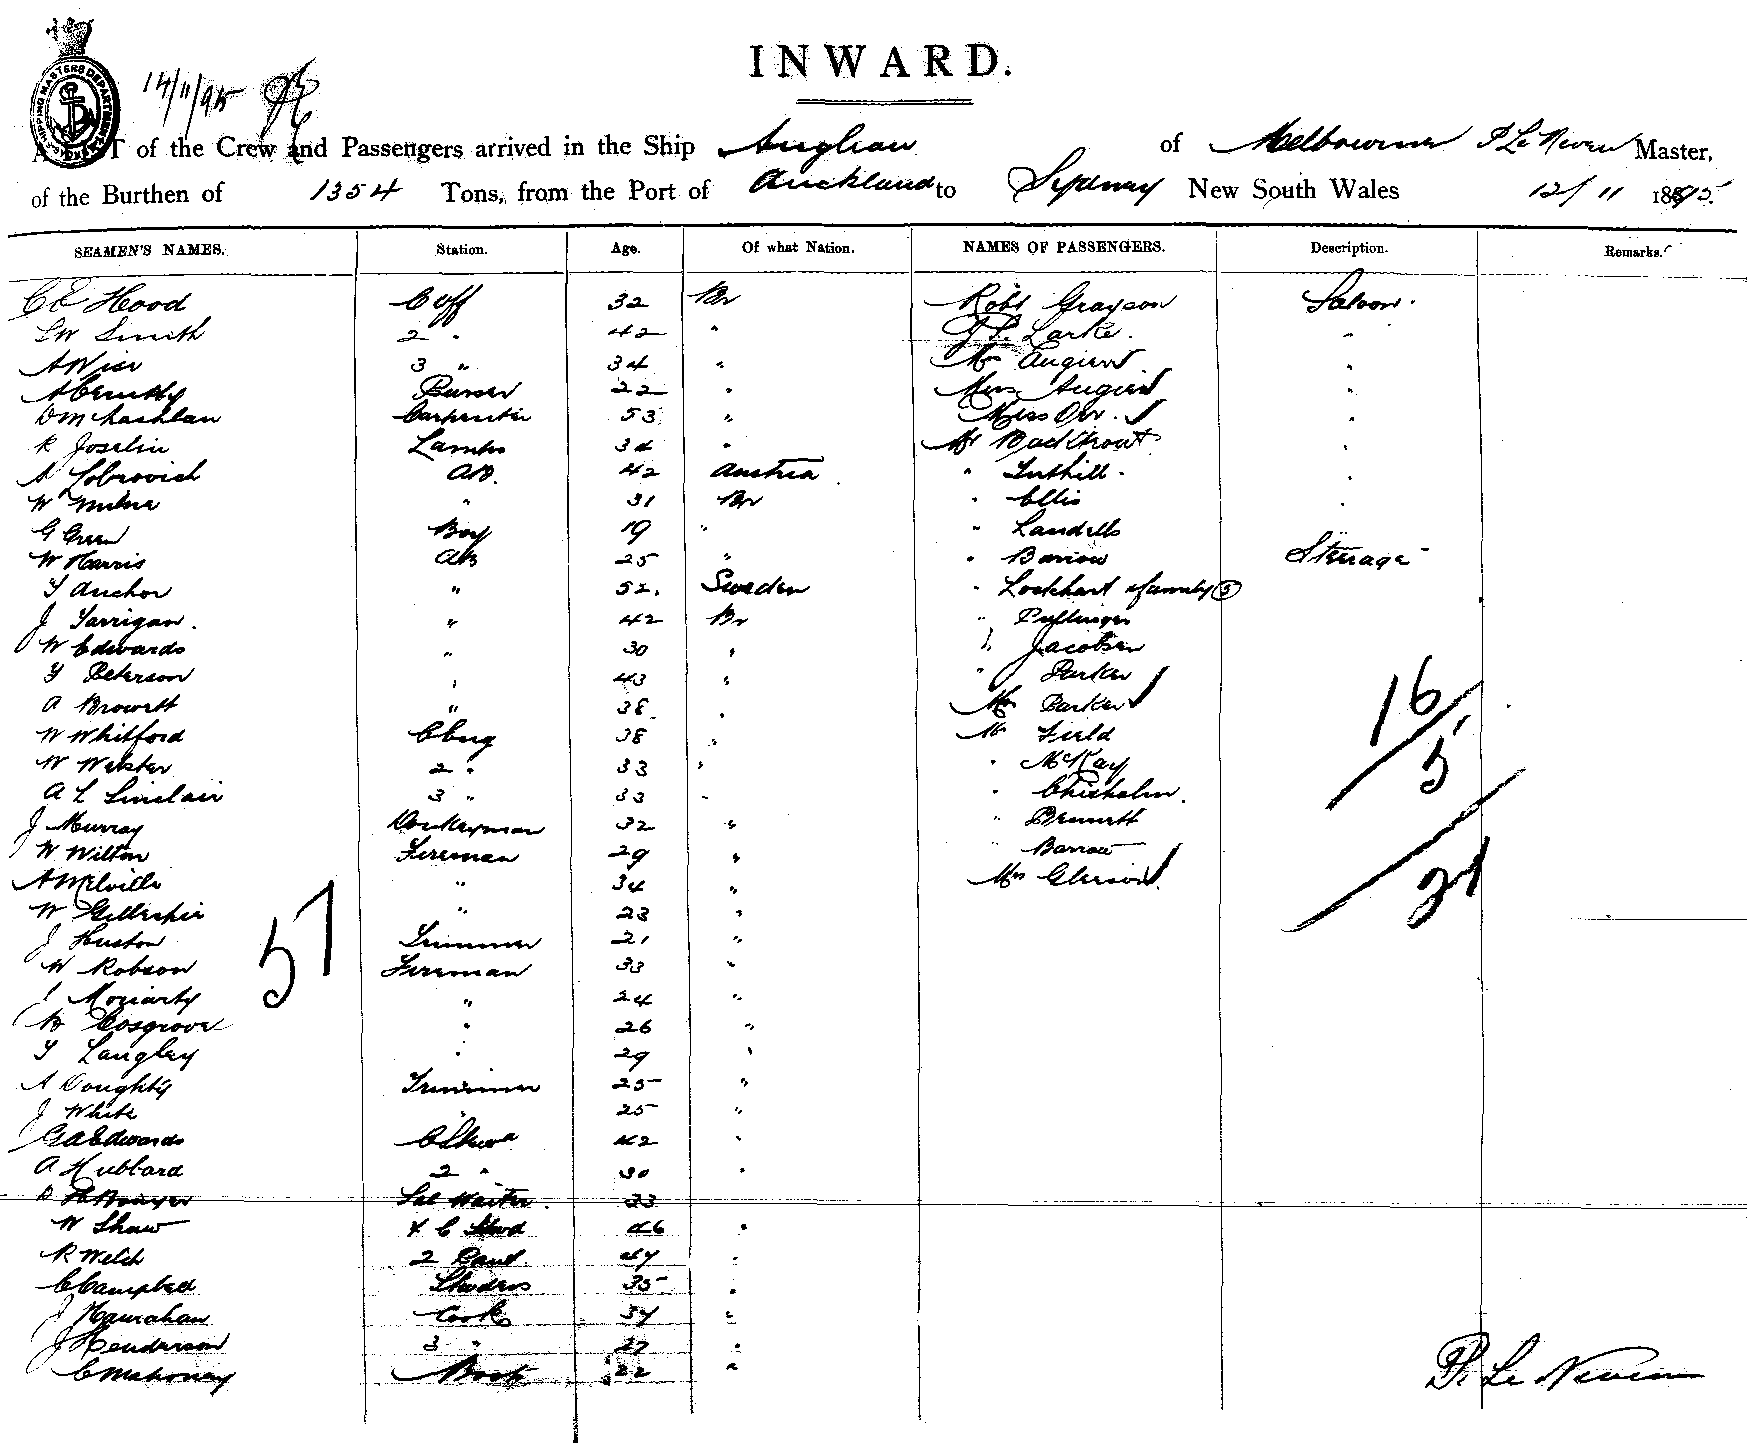 INWARD.
SHIPPING MASTERS DEPARTMENT
14/11/95
A LIST of the Crew and Passengers arrived in the Ship Anglian of Melbourne P Le Neven Master,
of the Burthen of 1354 Tons, from the Port of Auckland to Sydney New South Wales 12/11 1895.
SEAMEN'S NAMES. Station. Age. Of what Nation. NAMES OF PASSENGERS. Description. Remarks.
Hood C Off 32 Br Robt Grayson Saloon.
Smith 2 " 42 " Larke. "
A Wier 3 " 34 " Mr Augier "
Purser 22 " Augier "
D McLachlan Carpenter 53 " Miss Orr. "
R Joselin Lamps 34 " Mr "
A 42 Austria " Tuthill "
W Milne " 31 Br " Ellis "
G Green Boy 19 " " Landells
W Harris AB 25 " " Barrow Steerage
Anchor " 52. Sweden " Lockhart & family (5)
J Tarrigan. " 42 Br "
W Edwards " 30 " " Jacobsen
Peterson " 43 " " Parker
A Browett " 38 " Mrs Parker
W Whitford C Eng 38 " Mr Field
W Webster 2 " 33 " " McKay
A L Sinclair 3 " 33 " " Chisholm.
J Murray Donkeyman 32 " " Bennett
W Wilton Fireman 29 " " Barrow
A Melville " 34 " Mrs Gleeson
W Gillespie " 23 "
J Huston Trimmer 21 "
W Robson Fireman 33 "
J Moriarty " 24 "
Cosgrove " 26 "
Langley " 29 "
A Doughty Trimmer 25 "
J White " 25 "
G A Edwards 42 "
A Hubbard 2 " 30 "
Sal Waiter. 33
W Shaw 46 "
R Welch 2 Pant. 47 "
C Campbell Stwdess 35 "
J Hanrahan Cook 34 "
J Henderson 3 " 27 "
C Mahoney 22 "
16
5
21
57
P. Le Neven